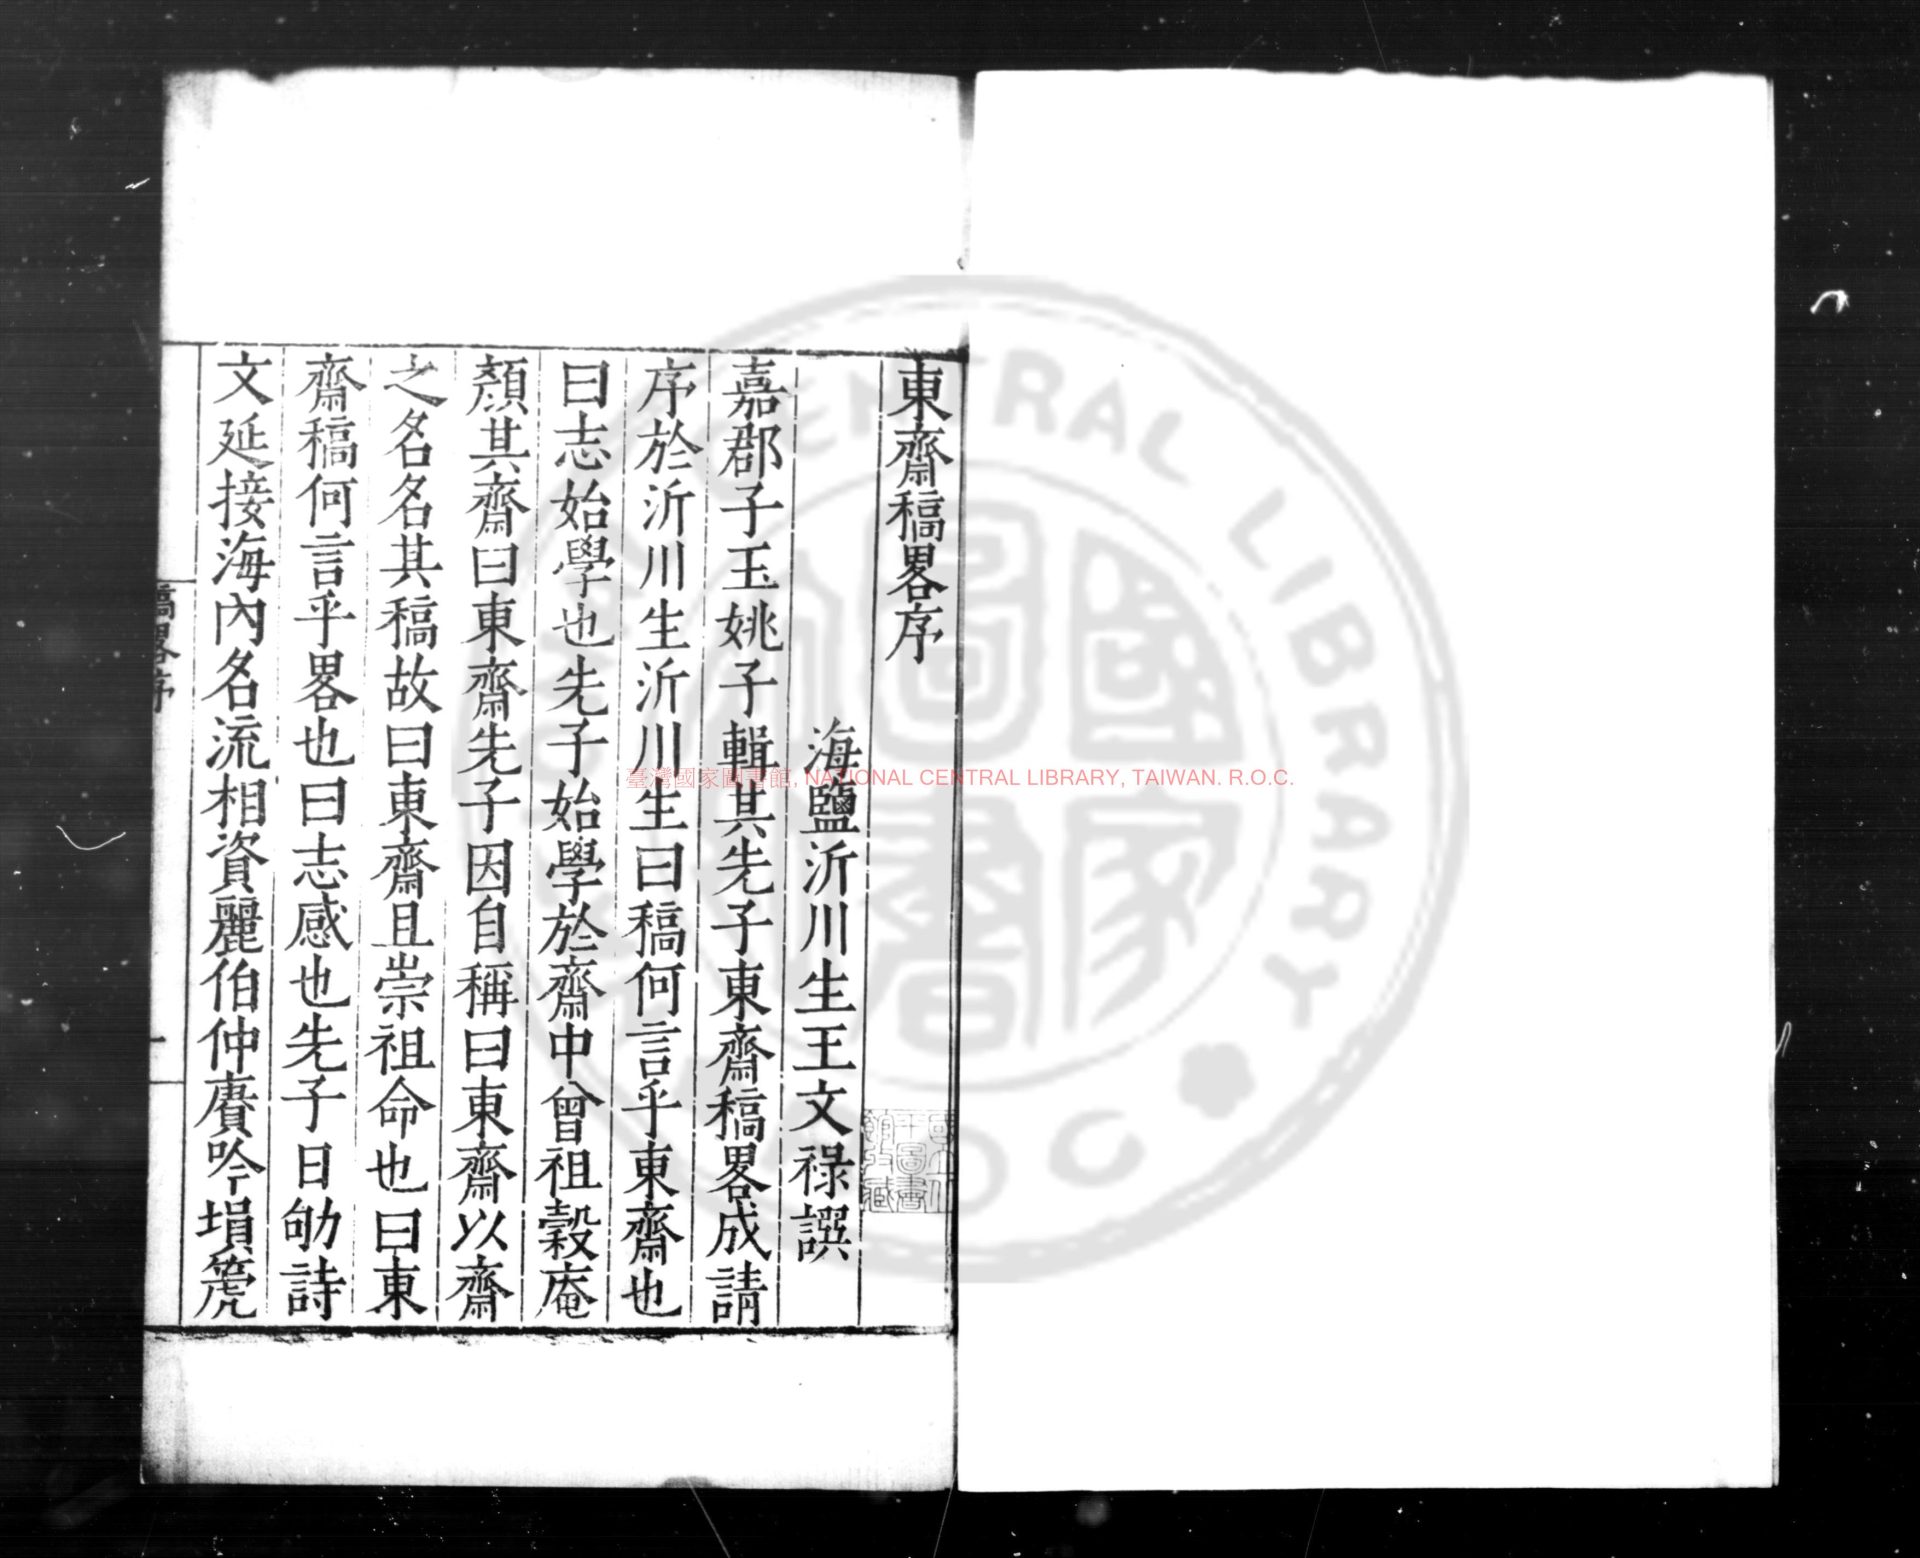 東齋稿畧序
海鹽沂川生王文祿譔
嘉郡子玉姚子輯其先子東齋稿畧成請
序於沂川生沂川生曰稿何言乎東齋也
曰志始學也先子始學於齋中曾祖穀庵
顏其齋曰東齋先子因自稱曰東齋以齋
之名名其稿故曰東齋且崇祖命也曰東
齋稿何言乎畧也曰志感也先子日劬詩
文延接海內名流相資麗伯仲賡吟塤箎
稿畧序
一
臺灣國家圖書館, NATIONAL CENTRAL LIBRARY, TAIWAN. R.O.C.